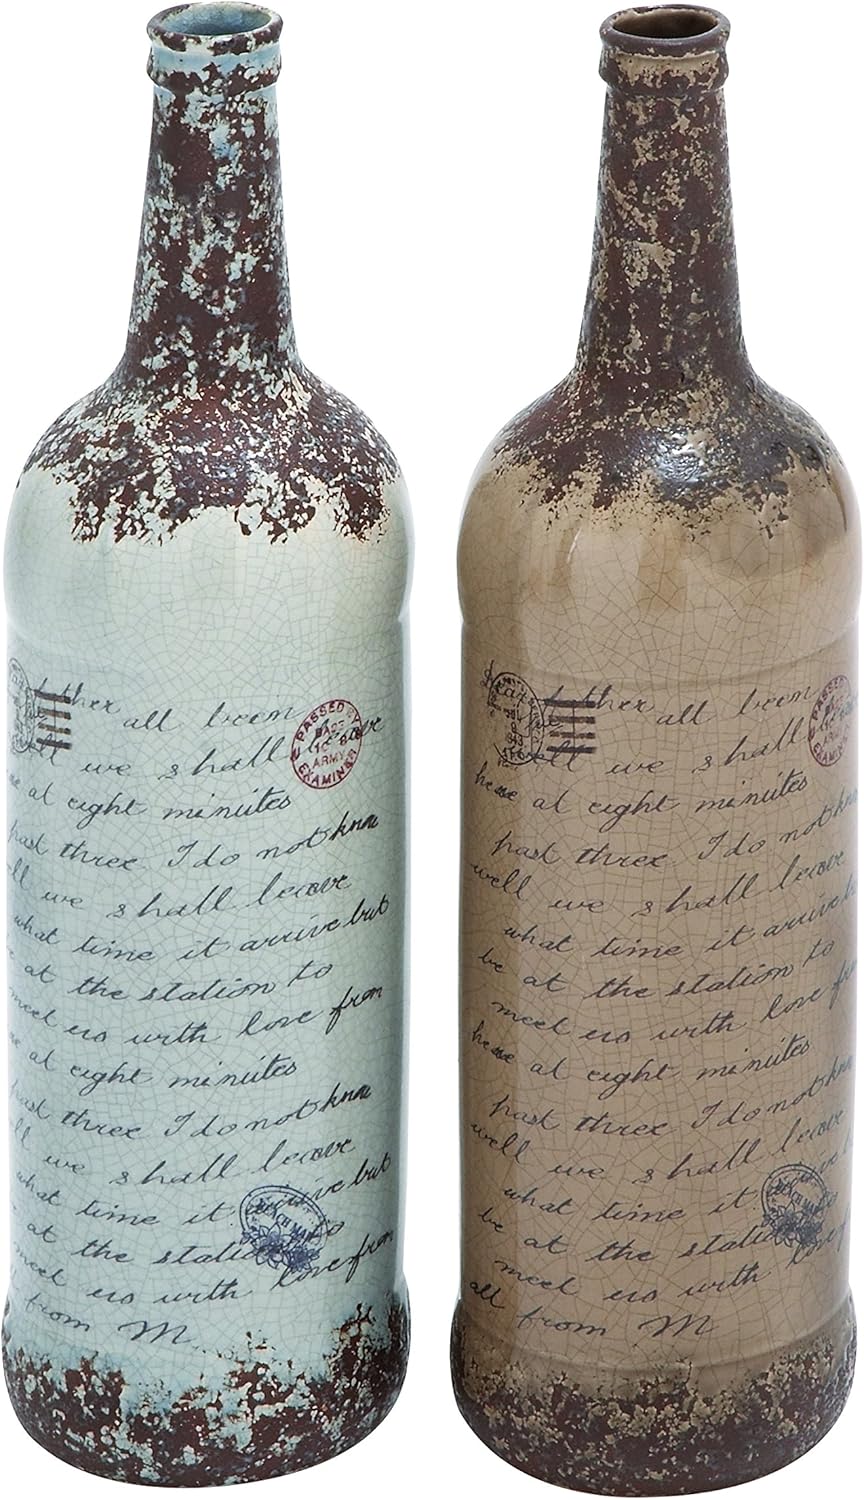 ther all been
well we shall leave
here at eight minutes
past three I do not know
well we shall leave
what time it arrive but
be at the station to
meet us with love from
here at eight minutes
past three I do not know
well we shall leave
what time it arrive but
be at the station to
meet us with love from
from M
PASSED BY
BASE
ARMY
EXAMINER
Dear ther all been
well we shall leave
here at eight minutes
past three I do not know
well we shall leave
what time it arrive but
be at the station to
meet us with love from
here at eight minutes
past three I do not know
well we shall leave
what time it arrive but
be at the station to
meet us with love from
all from M
PASSED
ARMY
EXAMINER